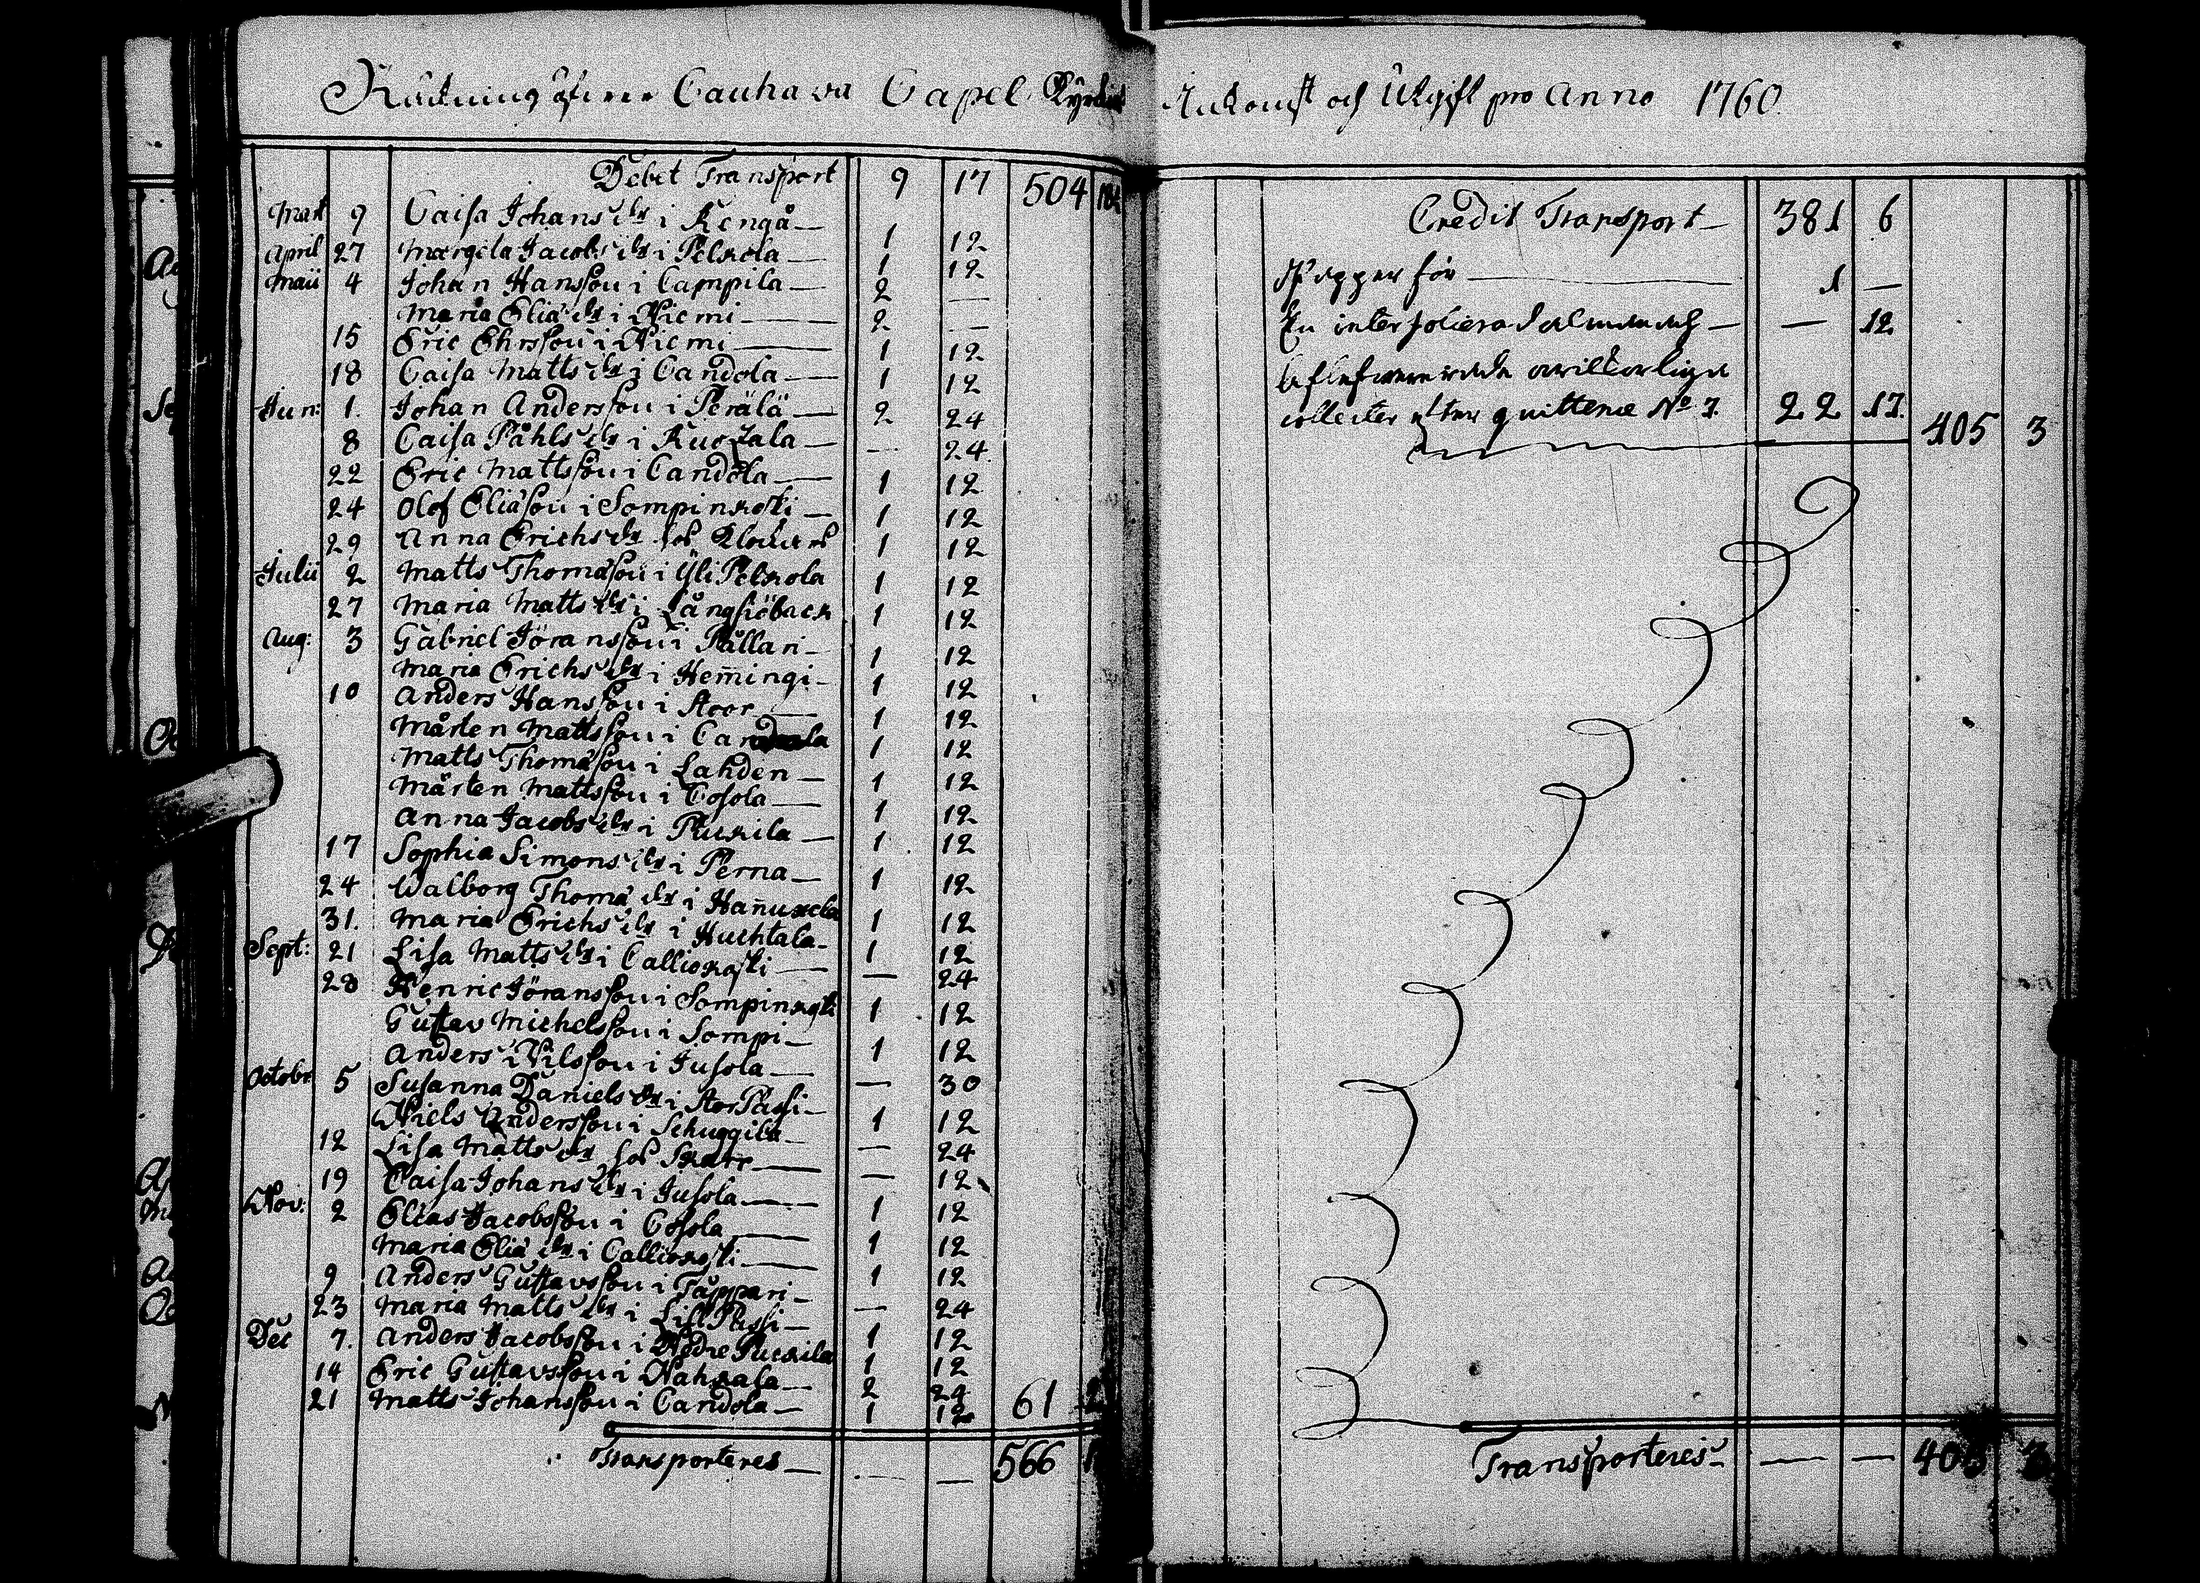 Räkning öfwer Cauhava Capel Kyrkios Inkomst och Utgift pro Anno 1760.
Debet Transport 9 17 504
Mart 9 Caisa Johans dr i Kengå — 1 12
April 27 Margita Jacobs dr i Pelkola — 1 12
Maii 4 Johan Hansson i Campila — 2 —
Maria Eliæ dr i Niemi — 2 —
15 Eric Ehrsson i Niemi — 1 12
18 Caisa Matts dr i Candola — 1 12
Jun: 1. Johan Andersson i Perälä — 2 24
8 Caisa Påhls dr i — — 24
22 Eric Mattsson i Candola — 1 12
24 Olof Eliæson i Sompinkoski — 1 12
29 Anna Erichs dr hos Klockars 1 12
Julii 2 Matts Thomasson i Yli Pelkola 1 12
27 Maria Matts dr i Långsiöback 1 12
Aug: 3 Gabriel Jöransson i Pållari — 1 12
Maria Erichs dr i Hem̄ingi — 1 12
10 Anders Hansson i Stoor — 1 12
Mårten Mattsson i 1 12
Matts Thomasson i Lahden — 1 12
Mårten Mattsson i Cosola — 1 12
Anna Jacobs dr i Puckila — 1 12
17 Sophia Simons dr i Perna — 1 12
24 Walborg Thomæ dr i Han̄uxela 1 12
31. Maria Erichs dr i Huchtala — 1 12
Sept: 21 Lisa Matts dr i CallioKoski — — 24
28 Henric Jöransson i Sompinkoski 1 12
Gustav Michelsson i Sompi — 1 12
Anders Nilsson i Jusola — — 30
Octobr 5 Susanna Daniels dr i Stor Passi — 1 12
Niels Andersson i Schuggila — — 24
12 Lisa Matts dr hos Skarp — — 12
19 Caisa Johans dr i Jusola — 1 12
Nov: 2 Elias Jacobsson i Cosola — 1 12
Maria Eliæ dr i Calliokoski — 1 12
9 Anders Gustavsson i Tåppari — — 24
23 Maria Matts dr i Lill Passi — 1 12
Dec 7. Anders Jacobsson i Nedre Puckila 1 12
14 Eric Gustavsson i Nahkala — 2 24
21 Matts Johansson i Candola — 1 12 61
Transporteres — — — 566
Credit Transport — 381 6
Papper för — 1 —
En interfolierad almanach — — 12
collecter efter quittence No 7. 22 17. 405 3
Transporteres — — — 405 3